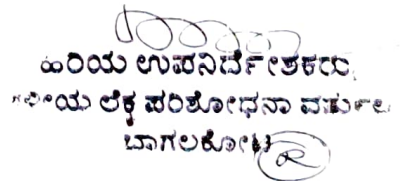 ಹಿರಿಯ ಉಪನಿರ್ದೇಶಕರು,
ಲೆಕ್ಕ ಪರಿಶೋಧನಾ ವರ್ತುಲ
ಬಾಗಲಕೋಟ